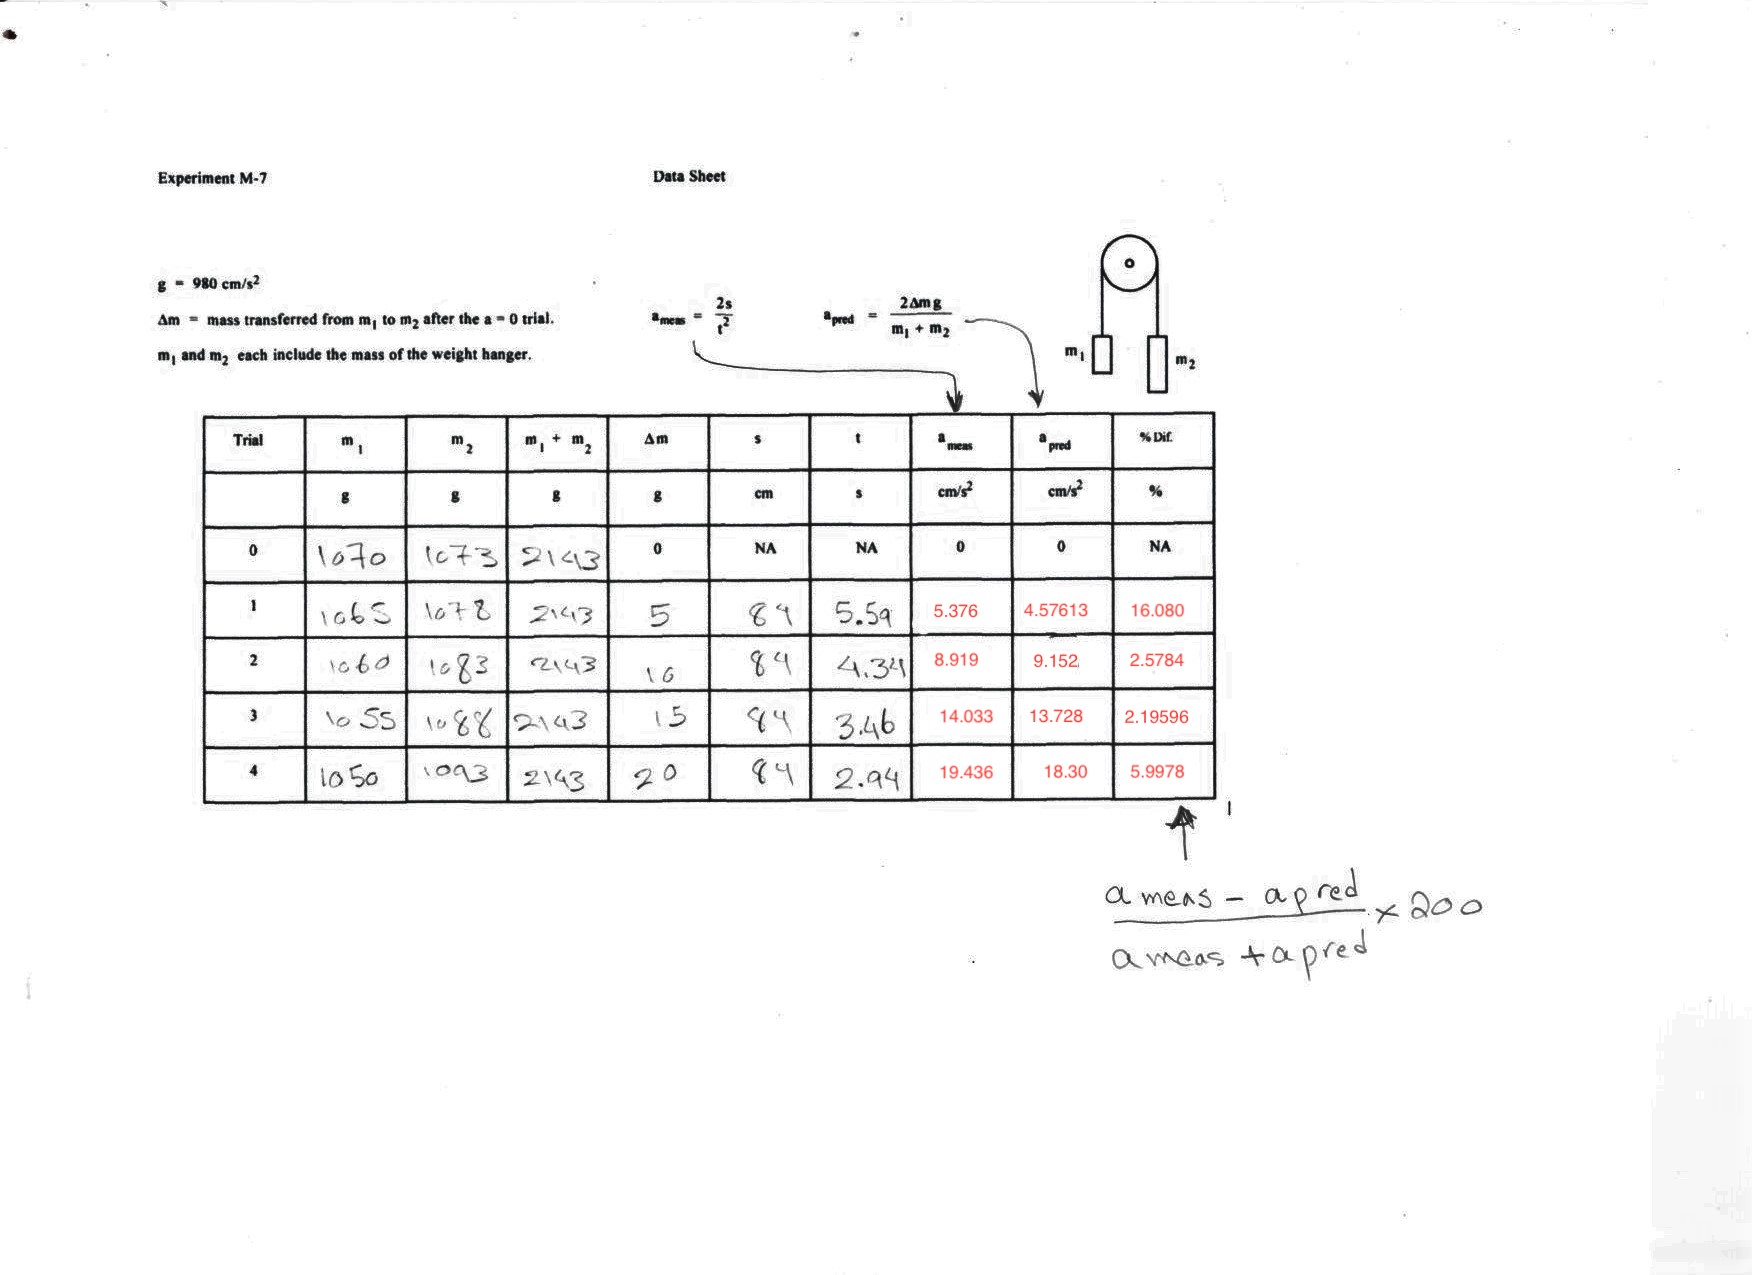 Experiment M-7 Data Sheet
g = 980 cm/s²
Δm = mass transferred from m₁ to m₂ after the a = 0 trial. a meas = 2s / t² a pred = 2Δm g / m₁ + m₂
m₁ and m₂ each include the mass of the weight hanger. m₁ m₂
Trial m₁ m₂ m₁ + m₂ Δm s t a meas a pred % Dif.
g g g g cm s cm/s² cm/s² %
0 1070 1073 2143 0 NA NA 0 0 NA
1 1065 1078 2143 5 84 5.59 5.376 4.57613 16.080
2 1060 1083 2143 10 84 4.34 8.919 9.152 2.5784
3 1055 1088 2143 15 84 3.46 14.033 13.728 2.19596
4 1050 1093 2143 20 84 2.94 19.436 18.30 5.9978
a meas - a pred × 200
a meas + a pred